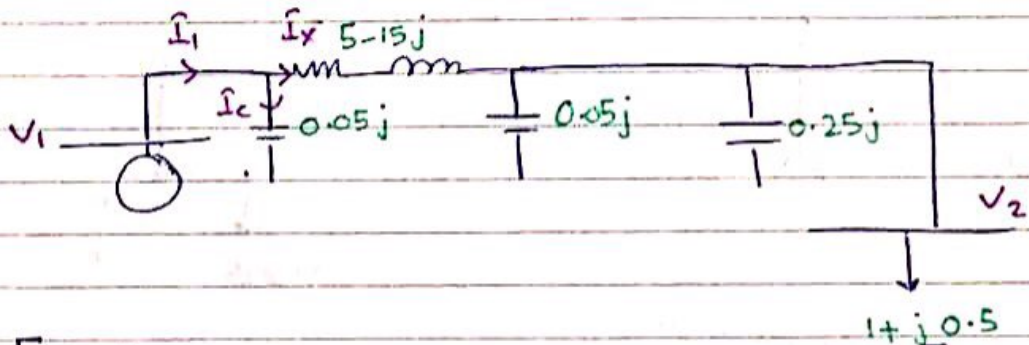 I₁ Iₓ 5-15j
V₁ I꜀ 0.05j 0.05j 0.25j
V₂
1+ j 0.5